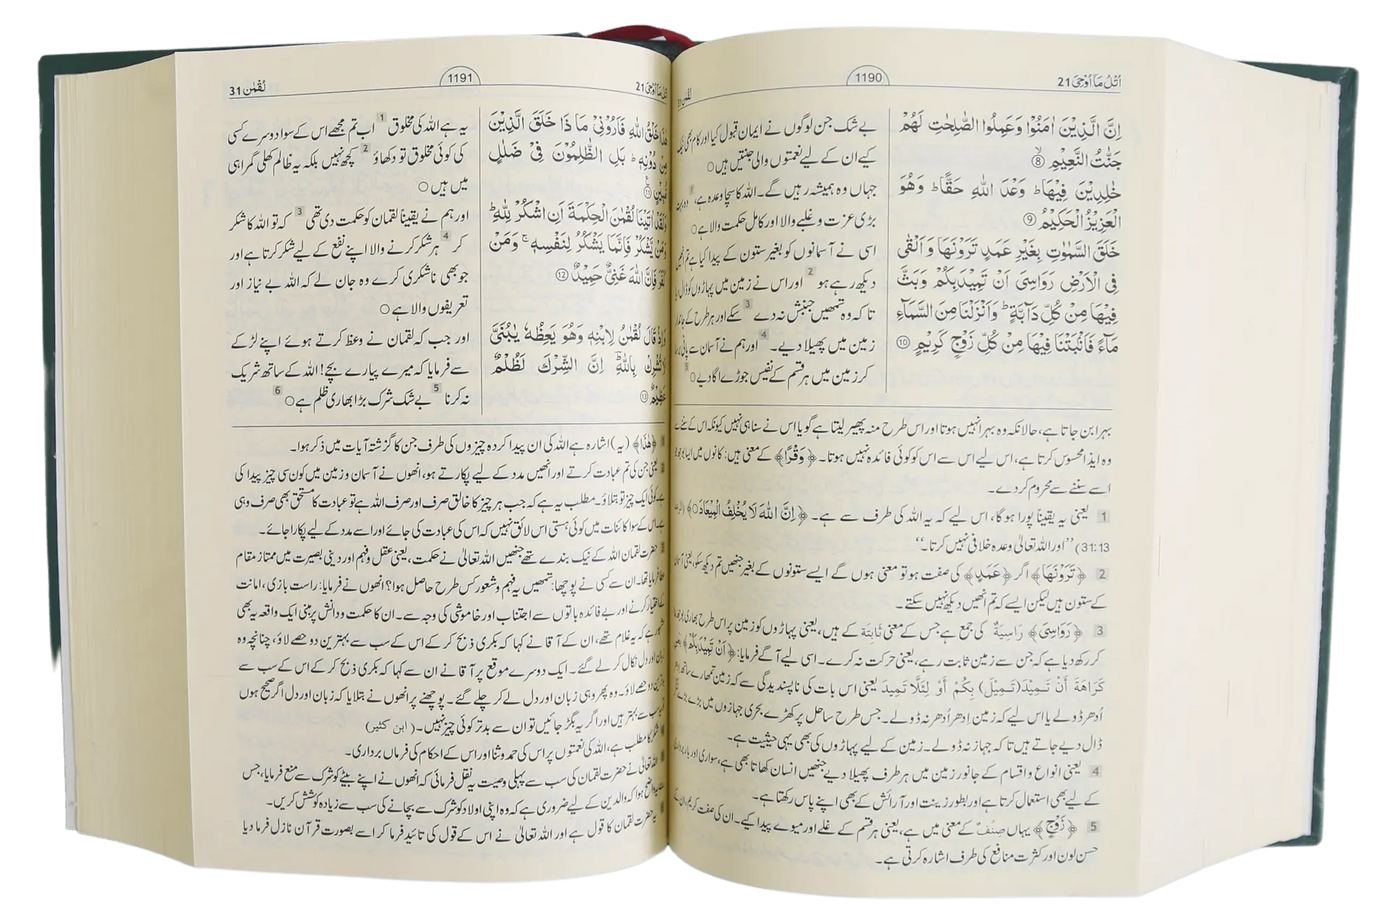 اُتْلُ مَآ اُوْحِیَ 21
1190
لُقْمٰن 31
اِنَّ الَّذِيْنَ اٰمَنُوْا وَعَمِلُوا الصّٰلِحٰتِ لَهُمْ
جَنّٰتُ النَّعِيْمِ ⑧
خٰلِدِيْنَ فِيْهَا ؕ وَعْدَ اللّٰهِ حَقًّا ؕ وَهُوَ
الْعَزِيْزُ الْحَكِيْمُ ⑨
خَلَقَ السَّمٰوٰتِ بِغَيْرِ عَمَدٍ تَرَوْنَهَا وَاَلْقٰى
فِى الْاَرْضِ رَوَاسِىَ اَنْ تَمِيْدَ بِكُمْ وَبَثَّ
فِيْهَا مِنْ كُلِّ دَآبَّةٍ ؕ وَاَنْزَلْنَا مِنَ السَّمَآءِ
مَآءً فَاَنْۢبَتْنَا فِيْهَا مِنْ كُلِّ زَوْجٍ كَرِيْمٍ ⑩
بے شک جن لوگوں نے ایمان قبول کیا اور کام بھی
کیے ان کے لیے نعمتوں والی جنتیں ہیں ○
جہاں وہ ہمیشہ رہیں گے۔ اللہ کا سچا وعدہ ہے، 1
بڑی عزت و غلبے والا اور کامل حکمت والا ہے ○
اسی نے آسمانوں کو بغیر ستون کے پیدا کیا ہے تم انھیں
دیکھ رہے ہو 2 اور اس نے زمین میں پہاڑوں کو ڈال دیا
تاکہ وہ تمھیں جنبش نہ دے 3 سکے اور ہر طرح کے جاندار
زمین میں پھیلا دیے۔ 4 اور ہم نے آسمان سے پانی
کر زمین میں ہر قسم کے نفیس جوڑے اگا دیے ○ 5
بہرا بن جاتا ہے، حالانکہ وہ بہرا نہیں ہوتا اور اس طرح منہ پھیر لیتا ہے گویا اس نے سنا ہی نہیں کیونکہ اس کے سننے سے
وہ ایذا محسوس کرتا ہے، اس لیے اس سے اس کو کوئی فائدہ نہیں ہوتا۔ ﴿وَقْرًا﴾ کے معنی ہیں: کانوں میں ایسا بوجھ جو
اسے سننے سے محروم کر دے۔
1 یعنی یہ یقیناً پورا ہوگا، اس لیے کہ یہ اللہ کی طرف سے ہے۔ ﴿اِنَّ اللّٰهَ لَا يُخْلِفُ الْمِيْعَادَ ○﴾
31:13) ”اور اللہ تعالیٰ وعدہ خلافی نہیں کرتا۔“
2 ﴿تَرَوْنَهَا﴾ اگر ﴿عَمَدٍ﴾ کی صفت ہو تو معنی ہوں گے ایسے ستونوں کے بغیر جنھیں تم دیکھ سکو، یعنی
کے ستون ہیں لیکن ایسے کہ تم انھیں دیکھ نہیں سکتے۔
3 ﴿رَوَاسِىَ﴾ رَاسِيَةٌ کی جمع ہے جس کے معنی ثَابِتَة کے ہیں، یعنی پہاڑوں کو زمین پر اس طرح بھاری بوجھ بنا
کر رکھ دیا ہے کہ جن سے زمین ثابت رہے، یعنی حرکت نہ کرے۔ اسی لیے آگے فرمایا: ﴿اَنْ تَمِيْدَ بِكُمْ﴾ یعنی
كَرَاهَةَ أَنْ تَمِيْدَ (تَمِيْلَ) بِكُمْ أَوْ لِئَلَّا تَمِيدَ یعنی اس بات کی ناپسندیدگی سے کہ زمین تمھارے ساتھ
اُدھر ڈولے یا اس لیے کہ زمین ادھر اُدھر نہ ڈولے۔ جس طرح ساحل پر کھڑے بحری جہازوں میں بڑے بڑے
ڈال دیے جاتے ہیں تاکہ جہاز نہ ڈولے۔ زمین کے لیے پہاڑوں کی بھی یہی حیثیت ہے۔
4 یعنی انواع و اقسام کے جانور زمین میں ہر طرف پھیلا دیے جنھیں انسان کھاتا بھی ہے، سواری اور بار برداری
کے لیے بھی استعمال کرتا ہے اور بطور زینت اور آرائش کے بھی اپنے پاس رکھتا ہے۔
5 ﴿زَوْجٍ﴾ یہاں صِنْفٌ کے معنی میں ہے، یعنی ہر قسم کے غلے اور میوے پیدا کیے۔ ان کی صفت کریم، ان کے
حسن لون اور کثرت منافع کی طرف اشارہ کرتی ہے۔
اُتْلُ مَآ اُوْحِیَ 21
1191
لُقْمٰن 31
هٰذَا خَلْقُ اللّٰهِ فَاَرُوْنِىْ مَاذَا خَلَقَ الَّذِيْنَ
مِنْ دُوْنِهٖ ؕ بَلِ الظّٰلِمُوْنَ فِىْ ضَلٰلٍ
مُّبِيْنٍ ⑪
وَلَقَدْ اٰتَيْنَا لُقْمٰنَ الْحِكْمَةَ اَنِ اشْكُرْ لِلّٰهِ ؕ
وَمَنْ يَّشْكُرْ فَاِنَّمَا يَشْكُرُ لِنَفْسِهٖ ۚ وَمَنْ
كَفَرَ فَاِنَّ اللّٰهَ غَنِىٌّ حَمِيْدٌ ⑫
وَاِذْ قَالَ لُقْمٰنُ لِابْنِهٖ وَهُوَ يَعِظُهٗ يٰبُنَىَّ
لَا تُشْرِكْ بِاللّٰهِ ؕ اِنَّ الشِّرْكَ لَظُلْمٌ
عَظِيْمٌ ⑬
یہ ہے اللہ کی مخلوق 1 اب تم مجھے اس کے سوا دوسرے کسی
کی کوئی مخلوق تو دکھاؤ 2 کچھ نہیں بلکہ یہ ظالم کھلی گمراہی
میں ہیں ○
اور ہم نے یقیناً لقمان کو حکمت دی تھی 3 کہ تو اللہ کا شکر
کر 4 ہر شکر کرنے والا اپنے نفع کے لیے شکر کرتا ہے اور
جو بھی ناشکری کرے وہ جان لے کہ اللہ بے نیاز اور
تعریفوں والا ہے ○
اور جب کہ لقمان نے وعظ کرتے ہوئے اپنے لڑکے
سے فرمایا کہ میرے پیارے بچے! اللہ کے ساتھ شریک
نہ کرنا 5 بے شک شرک بڑا بھاری ظلم ہے ○ 6
1 ﴿هٰذَا﴾ (یہ) اشارہ ہے اللہ کی ان پیدا کردہ چیزوں کی طرف جن کا گزشتہ آیات میں ذکر ہوا۔
2 یعنی جن کی تم عبادت کرتے اور انھیں مدد کے لیے پکارتے ہو، انھوں نے آسمان و زمین میں کون سی چیز پیدا کی
ہے؟ کوئی ایک چیز تو بتلاؤ۔ مطلب یہ ہے کہ جب ہر چیز کا خالق صرف اور صرف اللہ ہے تو عبادت کا مستحق بھی صرف وہی
ہے۔ اس کے سوا کائنات میں کوئی ہستی اس لائق نہیں کہ اس کی عبادت کی جائے اور اسے مدد کے لیے پکارا جائے۔
3 حضرت لقمان اللہ کے نیک بندے تھے جنھیں اللہ تعالیٰ نے حکمت، یعنی عقل و فہم اور دینی بصیرت میں ممتاز مقام
عطا فرمایا تھا۔ ان سے کسی نے پوچھا: تمھیں یہ فہم و شعور کس طرح حاصل ہوا؟ انھوں نے فرمایا: راست بازی، امانت
کے اختیار کرنے اور بے فائدہ باتوں سے اجتناب اور خاموشی کی وجہ سے۔ ان کا حکمت و دانش پر مبنی ایک واقعہ یہ بھی
مشہور ہے کہ یہ غلام تھے، ان کے آقا نے کہا کہ بکری ذبح کر کے اس کے سب سے بہترین دو حصے لاؤ، چنانچہ وہ
زبان اور دل نکال کر لے گئے۔ ایک دوسرے موقع پر آقا نے ان سے کہا کہ بکری ذبح کر کے اس کے سب سے
بدترین دو حصے لاؤ۔ وہ پھر وہی زبان اور دل لے کر چلے گئے۔ پوچھنے پر انھوں نے بتلایا کہ زبان اور دل اگر صحیح ہوں
تو یہ سب سے بہتر ہیں اور اگر یہ بگڑ جائیں تو ان سے بدتر کوئی چیز نہیں۔ (ابن کثیر)
4 شکر کا مطلب ہے، اللہ کی نعمتوں پر اس کی حمد و ثنا اور اس کے احکام کی فرماں برداری۔
5 اللہ تعالیٰ نے حضرت لقمان کی سب سے پہلی وصیت یہ نقل فرمائی کہ انھوں نے اپنے بیٹے کو شرک سے منع فرمایا، جس
سے یہ واضح ہوا کہ والدین کے لیے ضروری ہے کہ وہ اپنی اولاد کو شرک سے بچانے کی سب سے زیادہ کوشش کریں۔
6 یہ حضرت لقمان کا قول ہے اور اللہ تعالیٰ نے اس کے قول کی تائید فرما کر اسے بصورت قرآن نازل فرما دیا